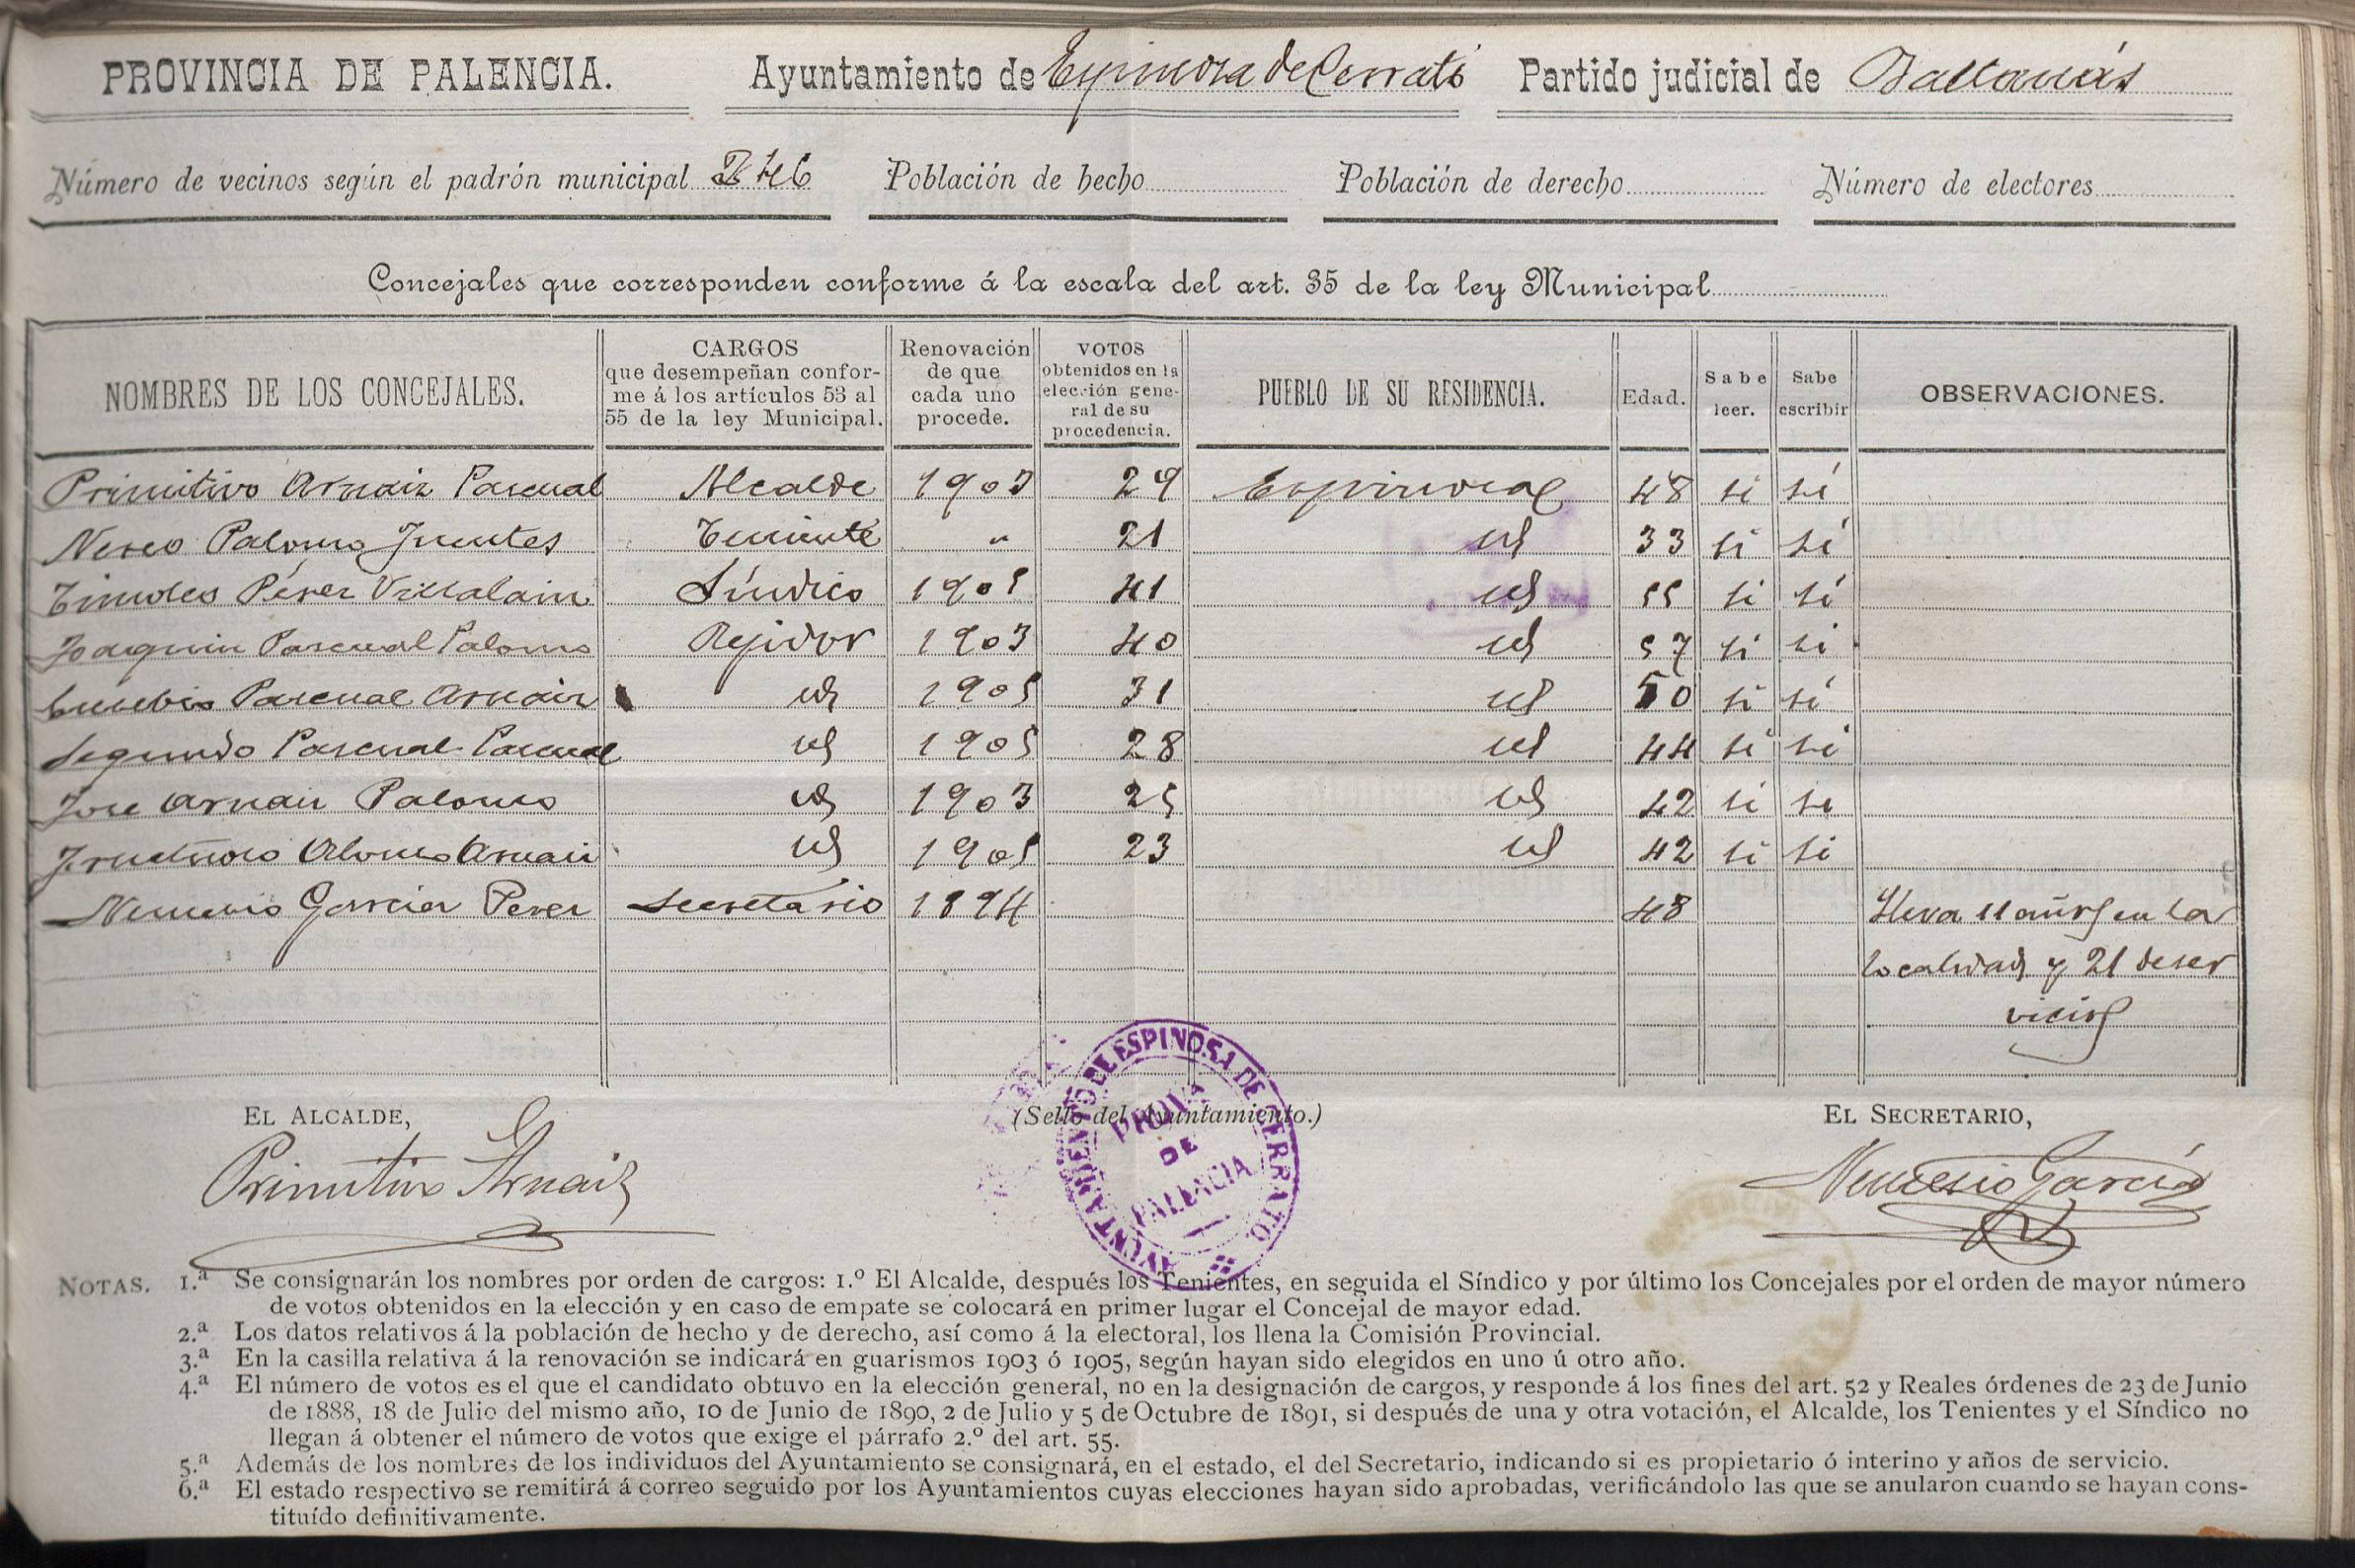 PROVINCIA DE PALENCIA. Ayuntamiento de Espinosa de Cerrato Partido judicial de Baltanás
Número de vecinos según el padrón municipal 246 Población de hecho Población de derecho Número de electores
Concejales que corresponden conforme á la escala del art. 35 de la ley Municipal
NOMBRES DE LOS CONCEJALES. CARGOS que desempeñan confor- me á los artículos 53 al 55 de la ley Municipal. Renovación de que cada uno procede. VOTOS obtenidos en la elección gene- ral de su procedencia. PUEBLO DE SU RESIDENCIA. Edad. Sabe leer. Sabe escribir OBSERVACIONES.
Primitivo Arnaiz Pascual Alcalde 1903 29 Espinosa 48 si sí
Nereo Palomo Fuentes Teniente " 21 id 33 si sí
Pérez Villalain Síndico 1905 41 id 55 si sí
Joaquin Pascual Palomo Rejidor 1903 40 id 57 si si
Eusebio Pascual Arnaiz id 1905 31 id 50 si sí
Segundo Pascual Pascual id 1905 28 id 44 si si
Jose Arnaiz Palomo id 1903 25 id 42 si si
Fructuoso Alonso Arnaiz id 1905 23 id 42 si si
Nemesio Garcia Perez Secretario 1894 48 Lleva 11 años en la
localidad y 21 de ser
vicios
EL ALCALDE, (Sello del Ayuntamiento.) EL SECRETARIO,
AYUNTAMIENTO DE ESPINOSA DE CERRATO
PROVA
DE
PALENCIA
Primitivo Arnaiz Nemesio García
NOTAS. 1.ª Se consignarán los nombres por orden de cargos: 1.º El Alcalde, después los Tenientes, en seguida el Síndico y por último los Concejales por el orden de mayor número
de votos obtenidos en la elección y en caso de empate se colocará en primer lugar el Concejal de mayor edad.
2.ª Los datos relativos á la población de hecho y de derecho, así como á la electoral, los llena la Comisión Provincial.
3.ª En la casilla relativa á la renovación se indicará en guarismos 1903 ó 1905, según hayan sido elegidos en uno ú otro año.
4.ª El número de votos es el que el candidato obtuvo en la elección general, no en la designación de cargos, y responde á los fines del art. 52 y Reales órdenes de 23 de Junio
de 1888, 18 de Julio del mismo año, 10 de Junio de 1890, 2 de Julio y 5 de Octubre de 1891, si después de una y otra votación, el Alcalde, los Tenientes y el Síndico no
llegan á obtener el número de votos que exige el párrafo 2.º del art. 55.
5.ª Además de los nombres de los individuos del Ayuntamiento se consignará, en el estado, el del Secretario, indicando si es propietario ó interino y años de servicio.
6.ª El estado respectivo se remitirá á correo seguido por los Ayuntamientos cuyas elecciones hayan sido aprobadas, verificándolo las que se anularon cuando se hayan cons-
tituído definitivamente.